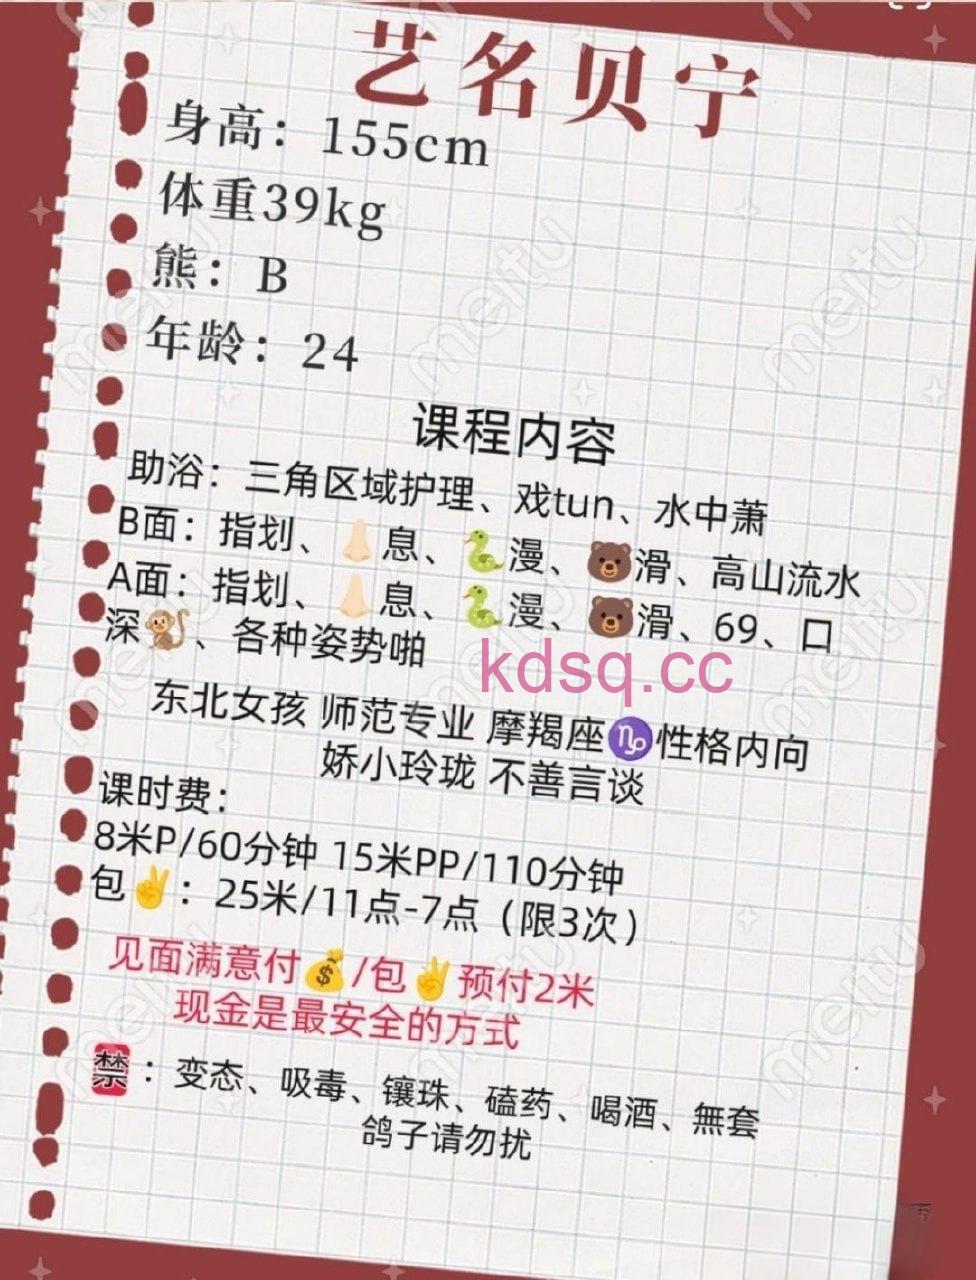 艺名贝宁
身高：155cm
体重39kg
熊：B
年龄：24
课程内容
助浴：三角区域护理、戏tun、水中萧
B面：指划、👃🏻息、🐍漫、🐻滑、高山流水
A面：指划、👃🏻息、🐍漫、🐻滑、69、口
深🐒、各种姿势啪
kdsq.cc
东北女孩 师范专业 摩羯座♑性格内向
娇小玲珑 不善言谈
课时费：
8米P/60分钟 15米PP/110分钟
包✌️：25米/11点-7点（限3次）
见面满意付💰/包✌️预付2米
现金是最安全的方式
禁：变态、吸毒、镶珠、磕药、喝酒、無套
鸽子请勿扰
meitu
meitu
meitu
meitu
meitu
meitu
meitu
meitu
meitu